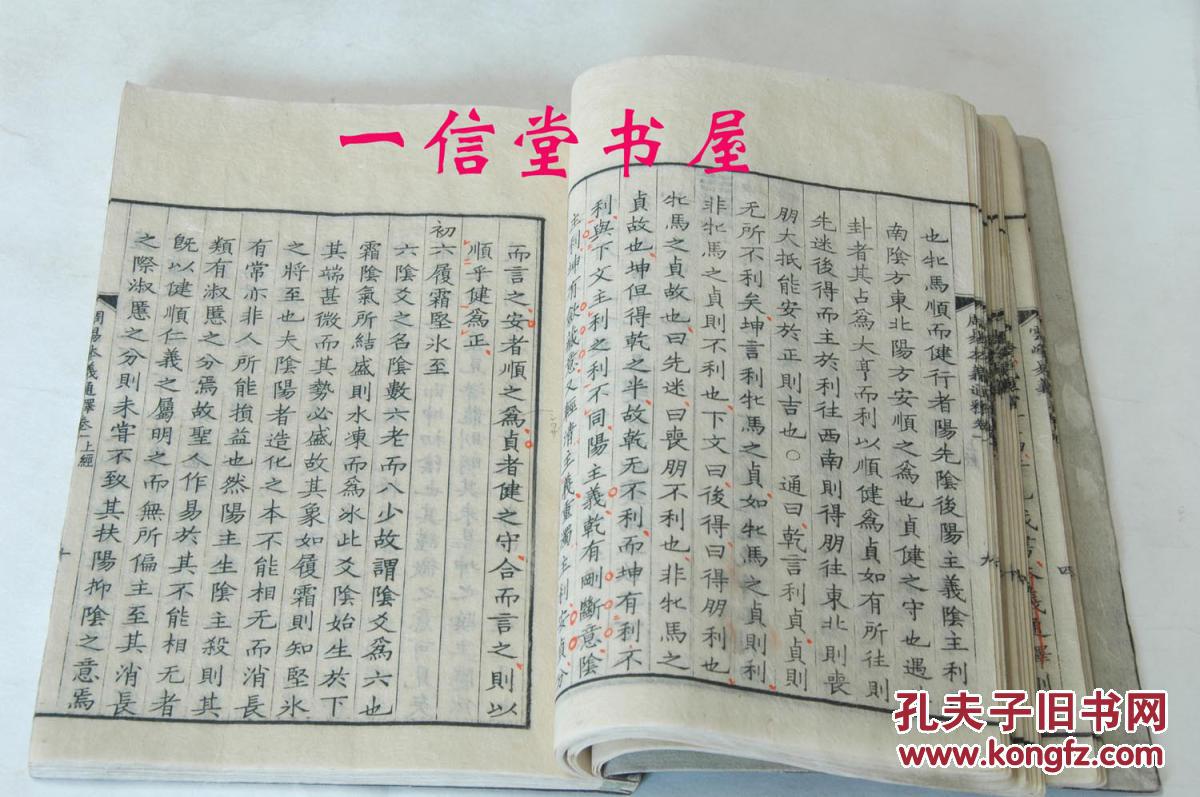 一信堂书屋
也牝馬順而健行者陽先陰後陽主義陰主利
南陰方東北陽方安順之為也貞健之守也遇
卦者其占為大亨而利以順健為貞如有所往則
先迷後得而主於利往西南則得朋往東北則喪
朋大抵能安於正則吉也○通曰乾言利貞貞則
无所不利矣坤言利牝馬之貞如牝馬之貞則利
非牝馬之貞則不利也下文曰後得曰得朋利也
牝馬之貞故也曰先迷曰喪朋不利也非牝馬之
貞故也坤但得乾之半故乾无不利而坤有利不
利與下文主利之利不同陽主義乾有剛斷意陰
而言之安者順之為貞者健之守合而言之則以
順乎健為正
初六履霜堅氷至
六陰爻之名陰數六老而八少故謂陰爻為六也
霜陰氣所結盛則水凍而為氷此爻陰始生於下
其端甚微而其勢必盛故其象如履霜則知堅氷
之將至也夫陰陽者造化之本不能相无而消長
有常亦非人所能損益也然陽主生陰主殺則其
類有淑慝之分焉故聖人作易於其不能相无者
旣以健順仁義之屬明之而無所偏主至其消長
之際淑慝之分則未嘗不致其扶陽抑陰之意焉
周易本義通釋卷一 上經
十
孔夫子旧书网
www.kongfz.com